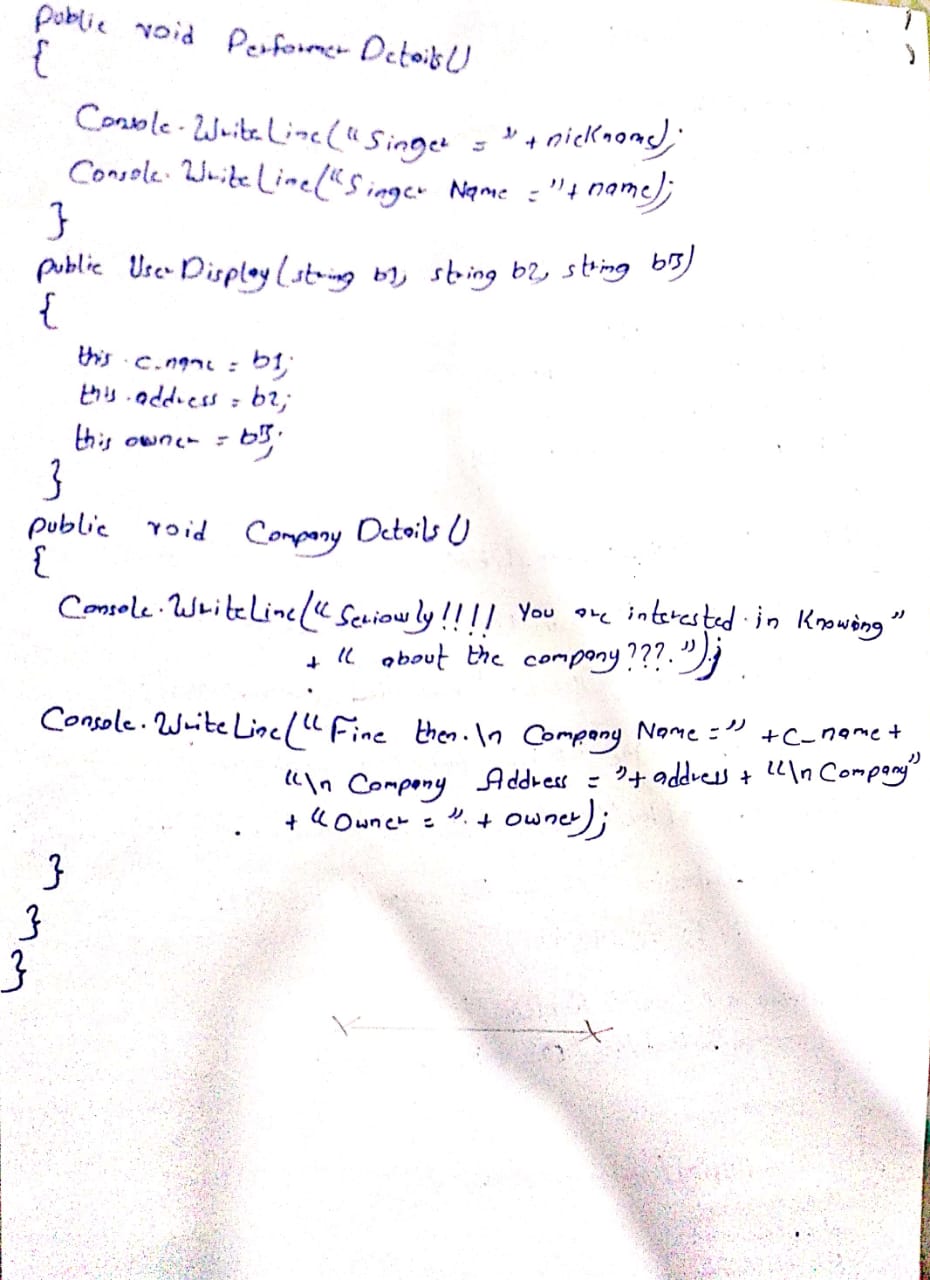 public void Performer Details()
{
Console.WriteLine("Singer = " + nickname);
Console.WriteLine("Singer Name = "+ name);
}
public User Display(string b1, string b2, string b3)
{
this.c_name = b1;
this.address = b2;
this owner = b3;
}
public void Company Details()
{
Console.WriteLine("Seriously!!!! You are interested in Knowing"
+ " about the company???.");
Console.WriteLine("Fine then.\n Company Name =" +c_name+
"\n Company Address = "+ address + "\n Company"
+ "Owner = ". + owner);
}
}
}